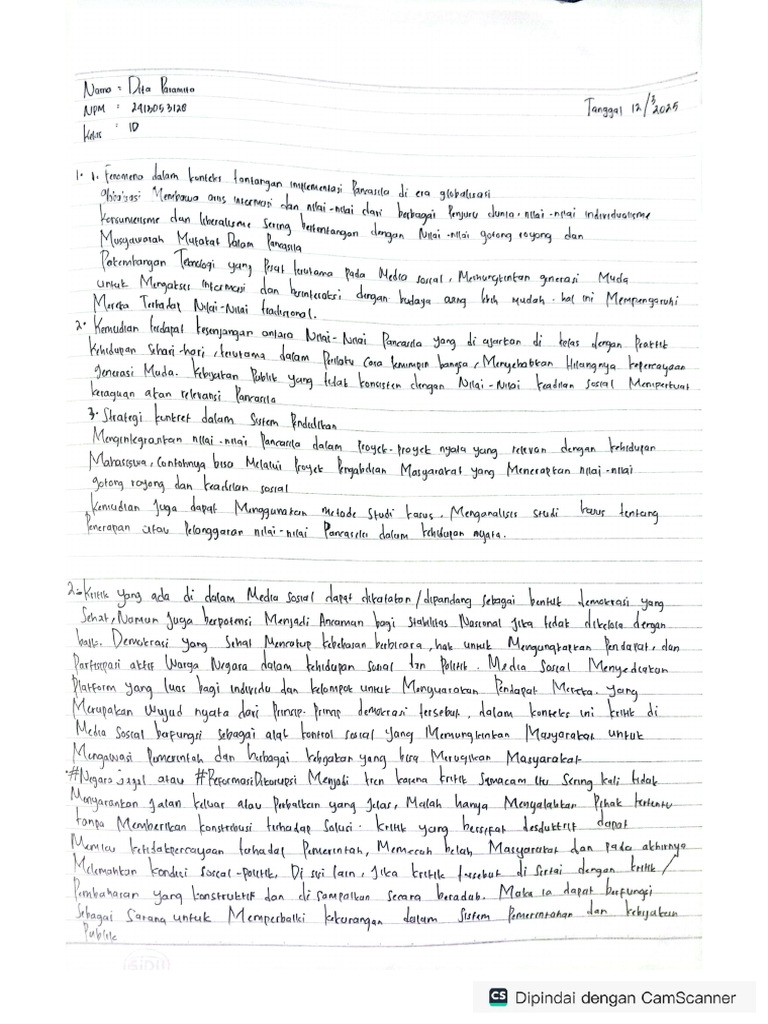 Nama : Dita Paramita
NPM : 2413053128
Kelas : 1D
Tanggal 12/3 2025
1. 1. Fenomena dalam konteks tantangan implementasi Pancasila di era globalisasi
Membawa arus informasi dan nilai-nilai dari berbagai Penjuru dunia. nilai-nilai individualisme
konsumerisme dan liberalisme Sering bertentangan dengan Nilai-nilai gotong royong dan
Musyawarah Mufakat Dalam Pancasila
Perkembangan Teknologi yang Pesat terutama pada Media sosial, Memungkinkan generasi Muda
untuk Mengakses informasi dan berinteraksi dengan budaya asing lebih mudah. hal ini Mempengaruhi
Mereka Terhadap Nilai-Nilai tradisional.
2. Kemudian terdapat kesenjangan antara Nilai-Nilai Pancasila yang di ajarkan di kelas dengan Praktik
Kehidupan sehari-hari, terutama dalam Perilaku Para Pemimpin bangsa, Menyebabkan Hilangnya kepercayaan
generasi Muda. Kebijakan Publik yang tidak konsisten dengan Nilai-Nilai keadilan sosial Memperkuat
keraguan akan relevansi Pancasila
3. Strategi konkret dalam Sistem Pendidikan
Mengintegrasikan nilai-nilai Pancasila dalam Proyek-Proyek nyata yang relevan dengan kehidupan
Mahasiswa, Contohnya bisa Melalui Proyek Pengabdian Masyarakat yang Menerapkan nilai-nilai
gotong royong dan keadilan sosial
Kemudian Juga dapat Menggunakan metode Studi kasus, Menganalisis studi kasus tentang
Penerapan atau Pelanggaran nilai-nilai Pancasila dalam kehidupan nyata.
2. Kritik yang ada di dalam Media Sosial dapat dikatakan / dipandang sebagai bentuk demokrasi yang
Sehat, Namun Juga berpotensi Menjadi Ancaman bagi Stabilitas Nasional Jika tidak dikelola dengan
baik. Demokrasi yang Sehat Mencakup kebebasan berbicara, hak untuk Mengungkapkan Pendapat, dan
Partisipasi aktif Warga Negara dalam kehidupan sosial dan Politik. Media Sosial Menyediakan
Platform yang luas bagi individu dan kelompok untuk Menyuarakan Pendapat Mereka. yang
Merupakan Wujud nyata dari Prinsip-Prinsip demokrasi tersebut, dalam konteks ini kritik di
Media Sosial berfungsi sebagai alat kontrol sosial yang Memungkinkan Masyarakat untuk
Mengawasi Pemerintah dan berbagai kebijakan yang bisa Merugikan Masyarakat
#Negara gagal atau #ReformasiDikorupsi Menjadi tren karena kritik Semacam itu Sering kali tidak
Menyarankan Jalan keluar atau Perbaikan yang Jelas, Malah hanya Menyalahkan Pihak tertentu
tanpa Memberikan konstribusi terhadap Solusi. kritik yang bersifat desduktrif dapat
Memicu ketidakpercayaan terhadap Pemerintah, Memecah belah Masyarakat dan pada akhirnya
Melemahkan kondisi Sosial-Politik. Di sisi lain, Jika kritik tersebut di sertai dengan kritik /
Pembahasan yang konstruktif dan di sampaikan secara beradab. Maka ia dapat berfungsi
Sebagai Sarana untuk Memperbaiki kekurangan dalam Sistem Pemerintahan dan kebijakan
Publik
CS Dipindai dengan CamScanner